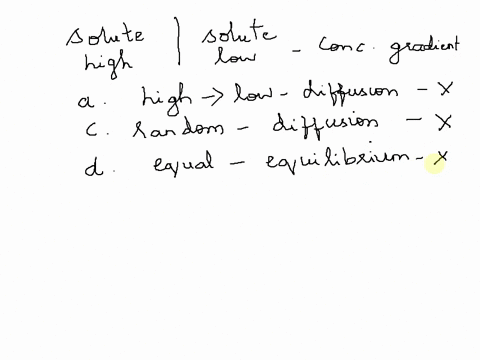 solute | solute - conc. gradient
high low
a. high -> low - diffusion - x
c. random - diffusion - x
d. equal - equilibrium - x